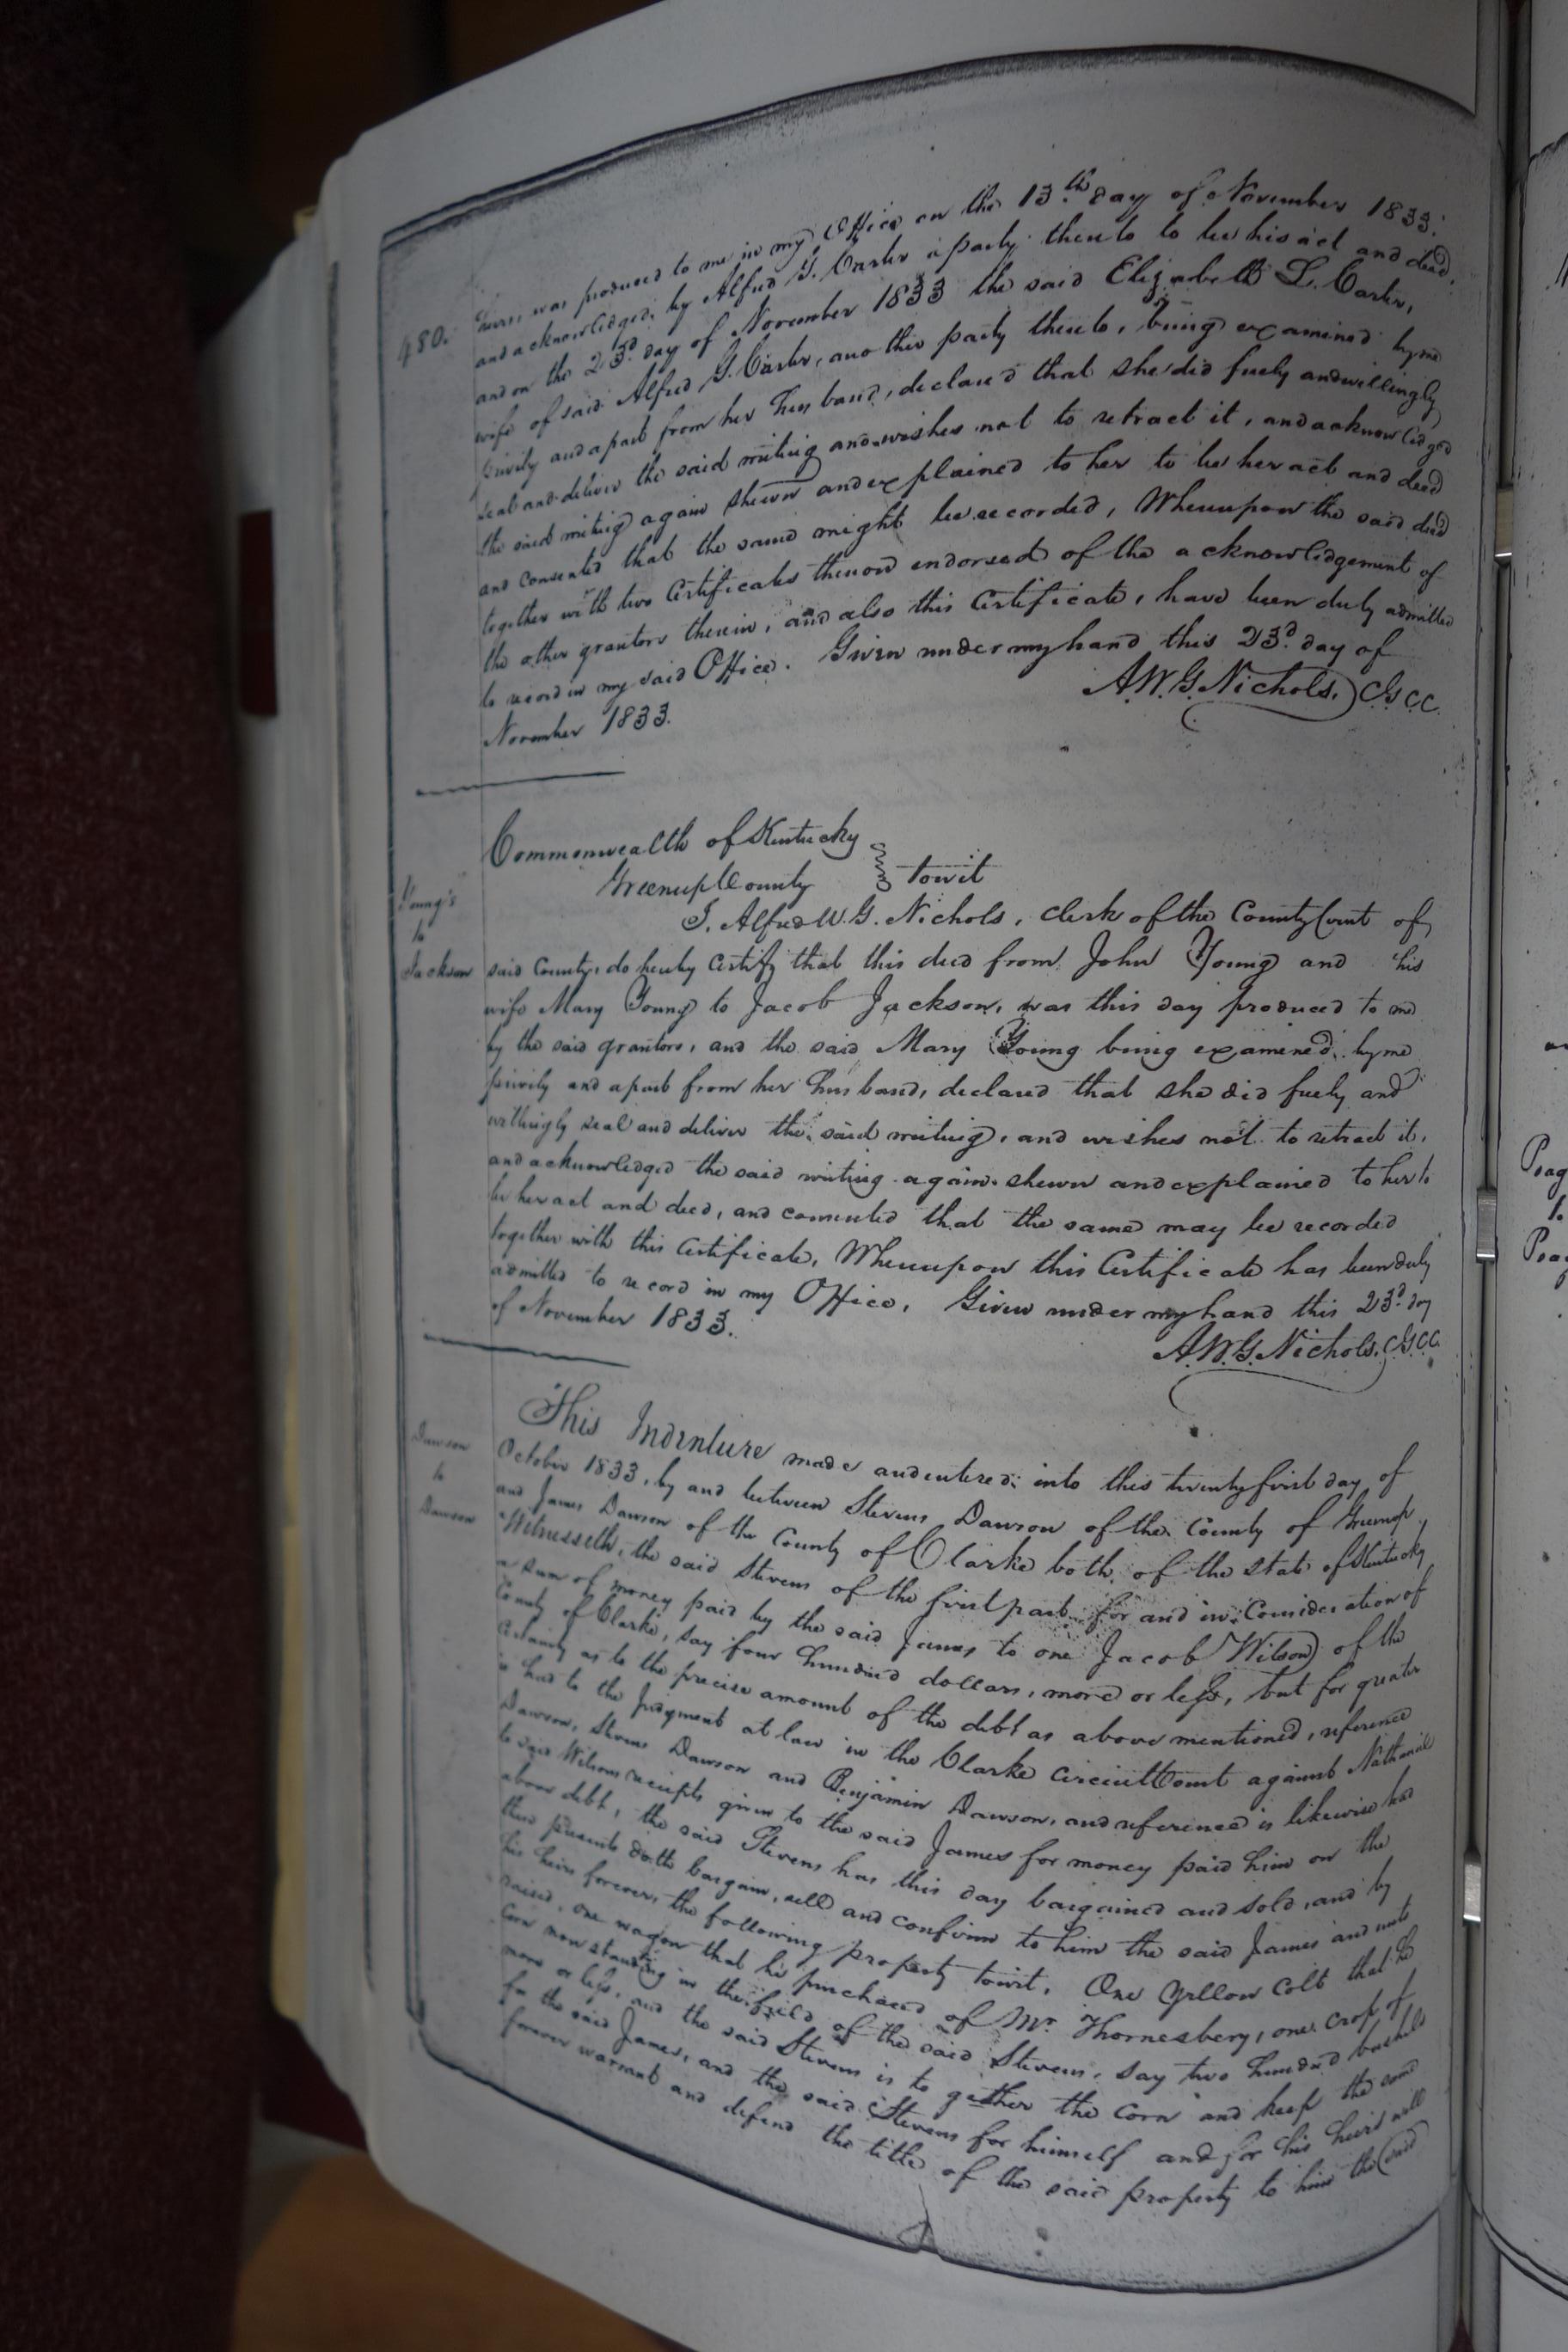 480.
heirs, was produced to me in my Office on the 13th day of November 1833.
and acknowledged by Alfred G. Carter a party thereto to be his act and deed,
and on the 23d day of November 1833 the said Elizabeth L. Carter,
wife of said Alfred G. Carter, another party thereto, being examined by me
privily and apart from her husband, declared that she did freely and willingly
seal and deliver the said writing and wishes not to retract it, and acknowledged
the said writing again shewn and explained to her to be her act and deed
and consented that the same might be recorded, Whereupon the said deed
together with two Certificates thereon endorsed of the acknowledgement of
the other grantors therein, and also this Certificate, have been duly admitted
to record in my said Office. Given under my hand this 23d day of
November 1833.
A.W.G. Nichols. C.G.C.C.
Young's
to
Jackson
Commonwealth of Kentucky
Greenup County towit
I. Alfred W. G. Nichols, clerk of the County Court of
said County, do hereby Certify that this deed from John Young and his
wife Mary Young to Jacob Jackson, was this day produced to me
by the said grantors, and the said Mary Young being examined by me
privily and apart from her husband, declared that she did freely and
willingly seal and deliver the said writing, and wishes not to retract it,
and acknowledged the said writing again shewn and explained to her to
be her act and deed, and consented that the same may be recorded
together with this Certificate, Whereupon this Certificate has been duly
admitted to record in my Office, Given under my hand this 23d day
of November 1833.
A.W.G. Nichols. C.G.C.C.
Dawson
to
Dawson
This Indenture made and entered into this twenty first day of
October 1833, by and between Stevens Dawson of the County of Greenup,
and James Dawson of the County of Clarke both of the state of Kentucky
Witnesseth, the said Stevens of the first part for and in Consideration of
a sum of money paid by the said James to one Jacob Wilson of the
County of Clarke, say four hundred dollars, more or less, but for greater
certainty as to the precise amount of the debt as above mentioned, reference
is had to the Judgment at law in the Clarke Circuit Court against Nathaniel
Dawson, Stevens Dawson and Benjamin Dawson, and reference is likewise had
to said Wilsons receipts given to the said James for money paid him on the
above debt, the said Stevens has this day bargained and sold, and by
these presents doth bargain, sell and confirm to him the said James and unto
his heirs forever, the following property towit, One Yellow Colt that he
raised, one wagon that he purchased of Mr. Thornesbery, one crop of
corn now standing in the field of the said Stevens, say two hundred bushels
more or less, and the said Stevens is to gather the corn and keep the same
for the said James, and the said Stevens for himself and for his heirs will
forever warrant and defend the title of the said property to him the said